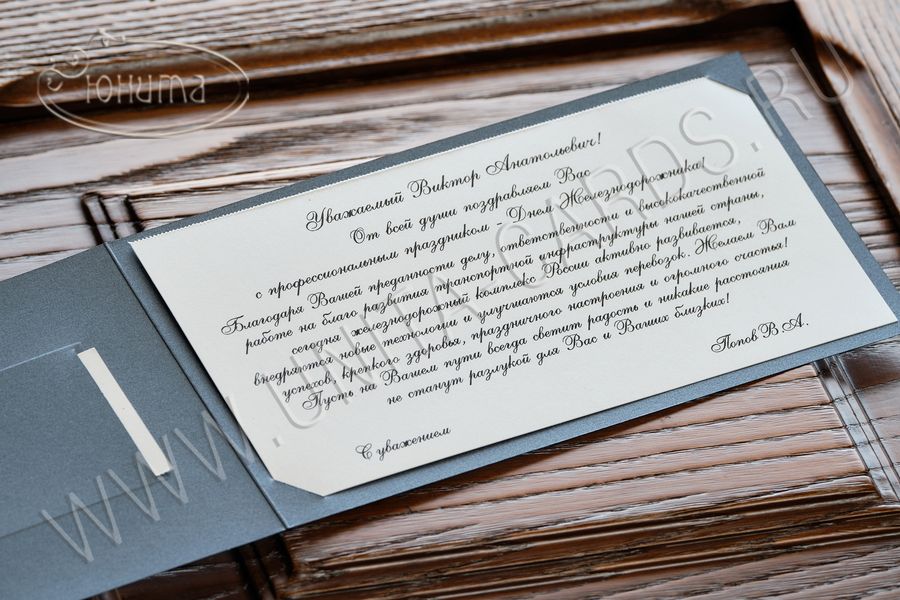 Юнита
Уважаемый Виктор Анатольевич!
От всей души поздравляем Вас
с профессиональным праздником - Днем Железнодорожника!
Благодаря Вашей преданности делу, ответственности и высококачественной
работе на благо развития транспортной инфраструктуры нашей страны,
сегодня железнодорожный комплекс России активно развивается,
внедряются новые технологии и улучшаются условия перевозок. Желаем Вам
успехов, крепкого здоровья, праздничного настроения и огромного счастья!
Пусть на Вашем пути всегда светит радость и никакие расстояния
не станут разлукой для Вас и Ваших близких!
С уважением
Попов В.А.
WWW.UNITA-CARDS.RU